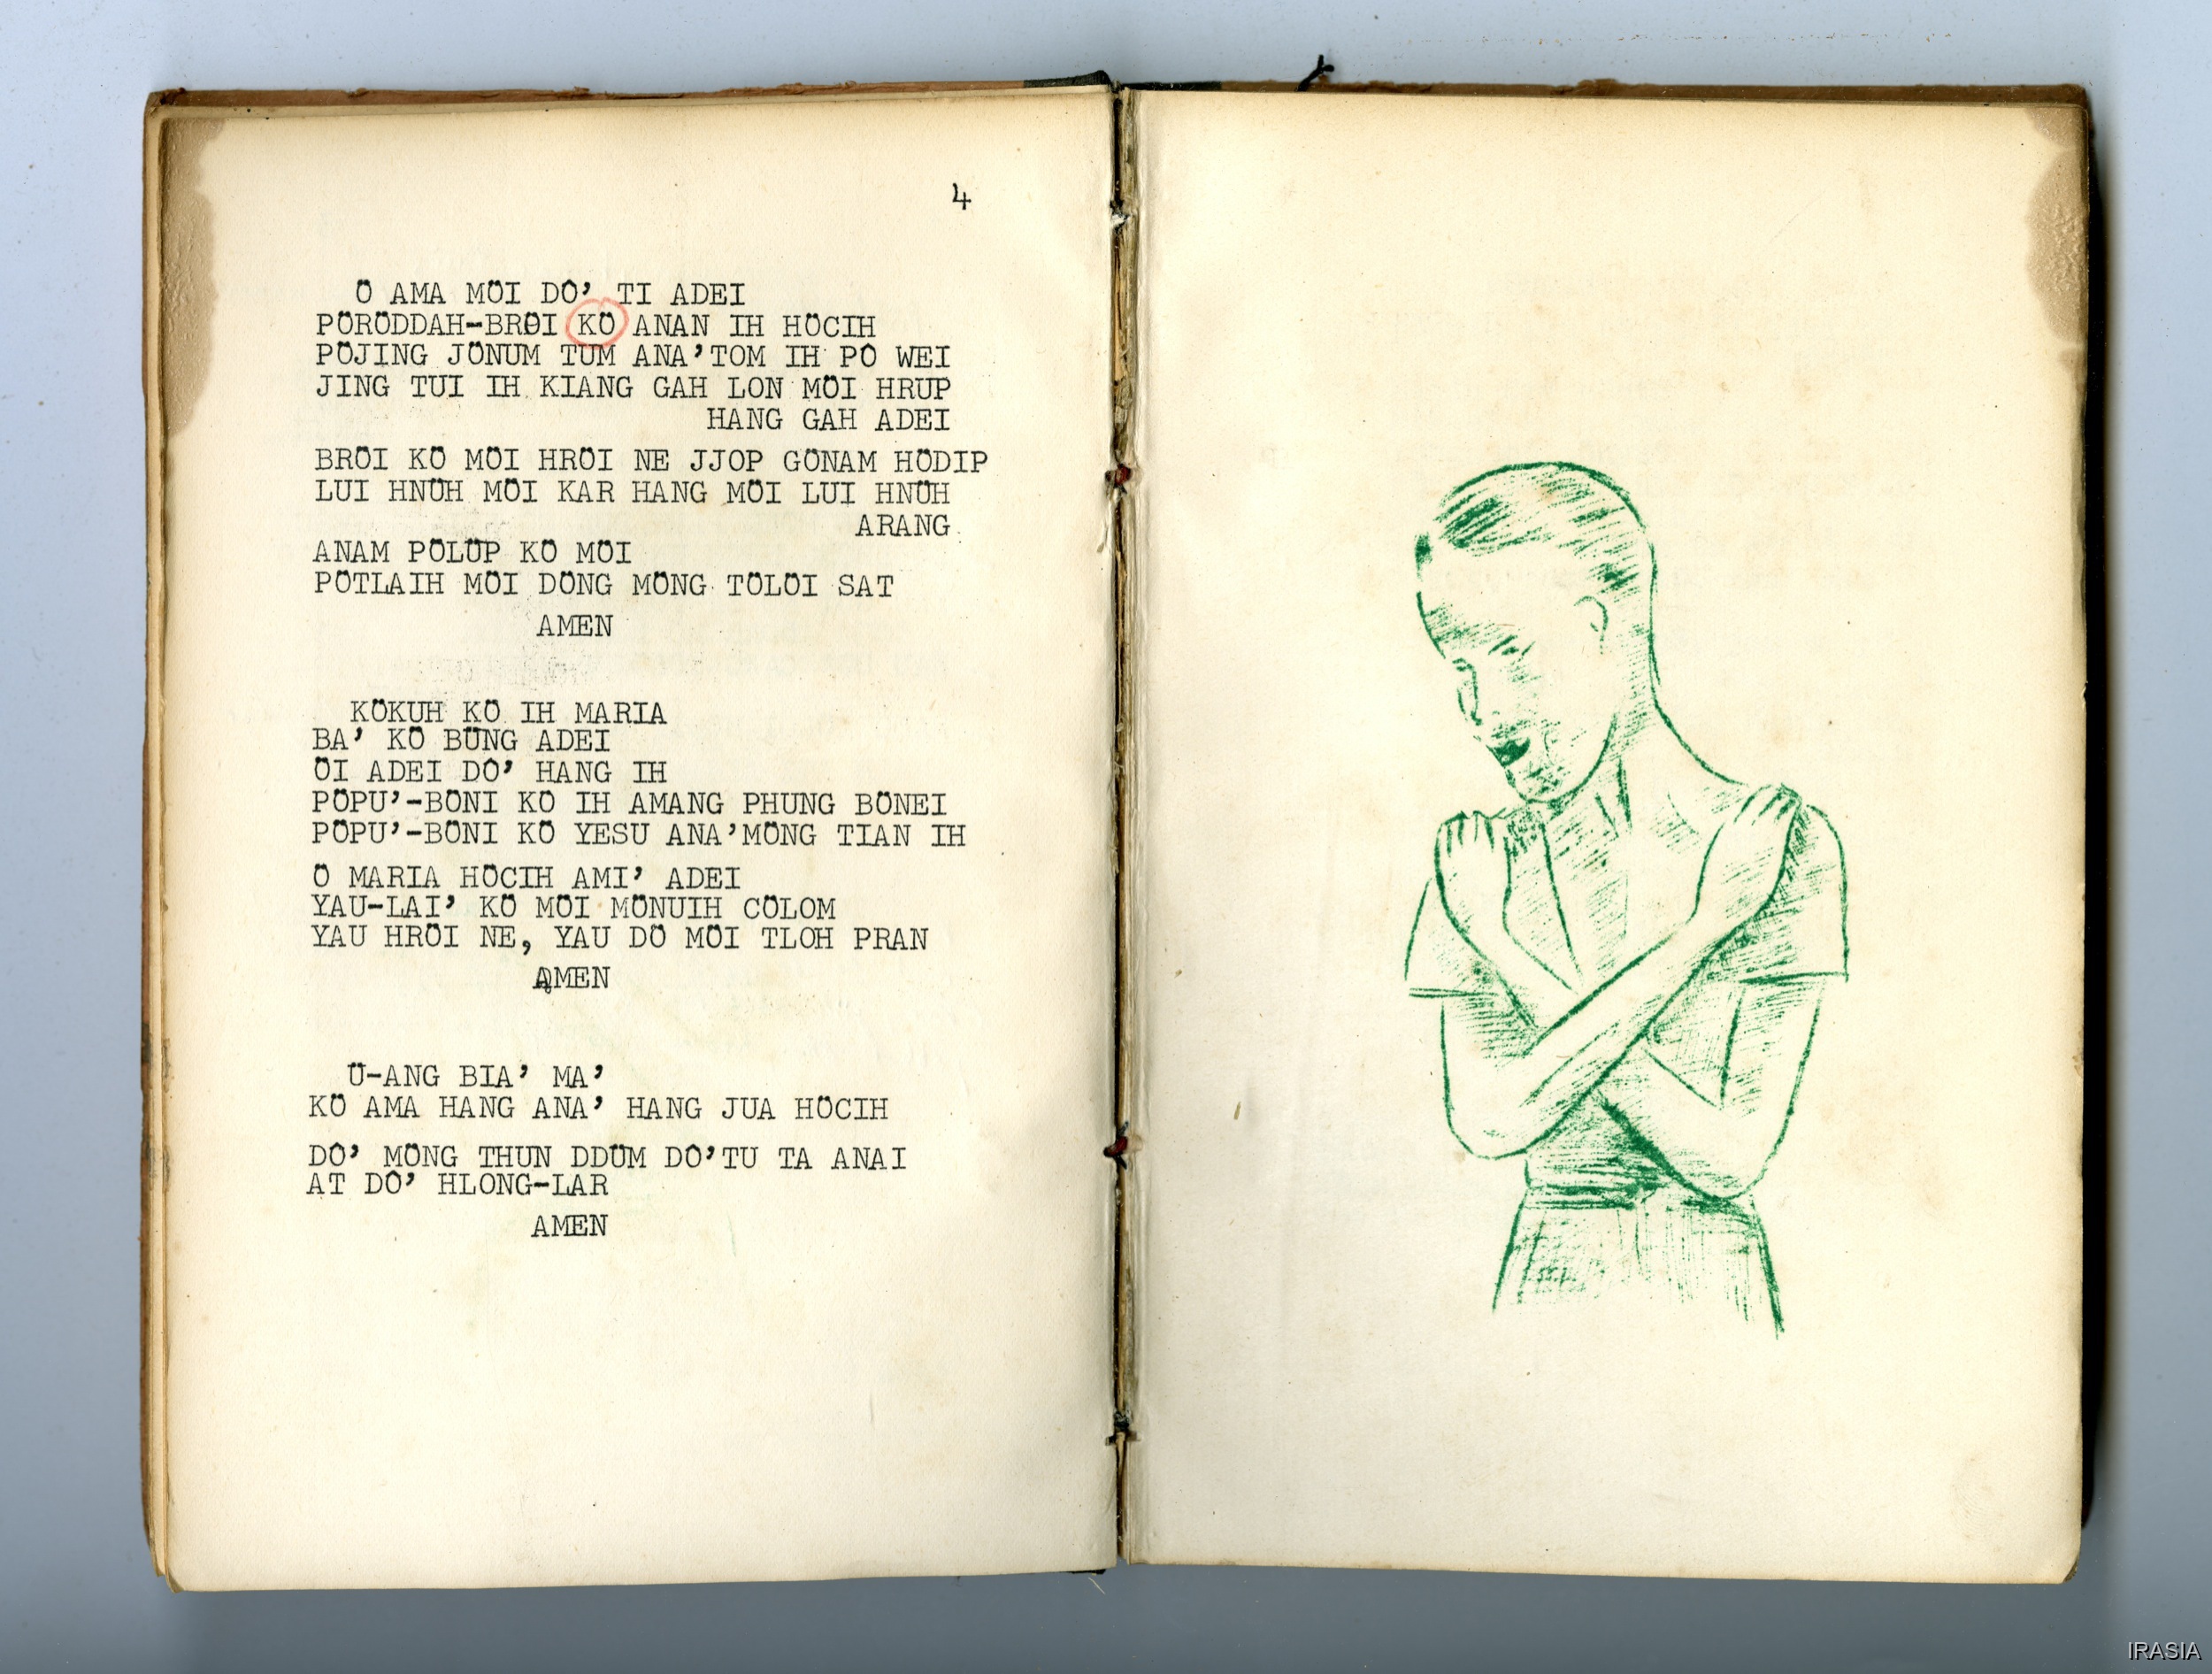 4
Ö AMA MÖI DÔ’ TI ADEI
PÖRÖDDAH-BRÖI KÖ ANAN IH HÖCIH
PÖJING JÖNUM TUM ANA’TOM IH PÔ WEI
JING TUI IH KIANG GAH LON MÖI HRUP
HANG GAH ADEI
BRÖI KÖ MÖI HRÖI NE JJOP GÖNAM HÖDIP
LUI HNÜH MÖI KAR HANG MÖI LUI HNÜH
ARANG
ANAM PÖLÜP KÖ MÖI
PÖTLAIH MÖI DÖNG MÖNG TÖLÖI SAT
AMEN
KÖKUH KÖ IH MARIA
BA’ KÖ BÜNG ADEI
ÖI ADEI DÔ’ HANG IH
PÖPU’-BÖNI KÖ IH AMANG PHUNG BÖNEI
PÖPU’-BÖNI KÖ YESU ANA’MÖNG TIAN IH
Ö MARIA HÖCIH AMI’ ADEI
YAU-LAI’ KÖ MÖI MÖNUIH CÖLOM
YAU HRÖI NE, YAU DÖ MÖI TLOH PRAN
AMEN
Ü-ANG BIA’ MA’
KÖ AMA HANG ANA’ HANG JUA HÖCIH
DÔ’ MÖNG THUN DDÜM DÔ’TU TA ANAI
AT DÔ’ HLONG-LAR
AMEN
IRASIA